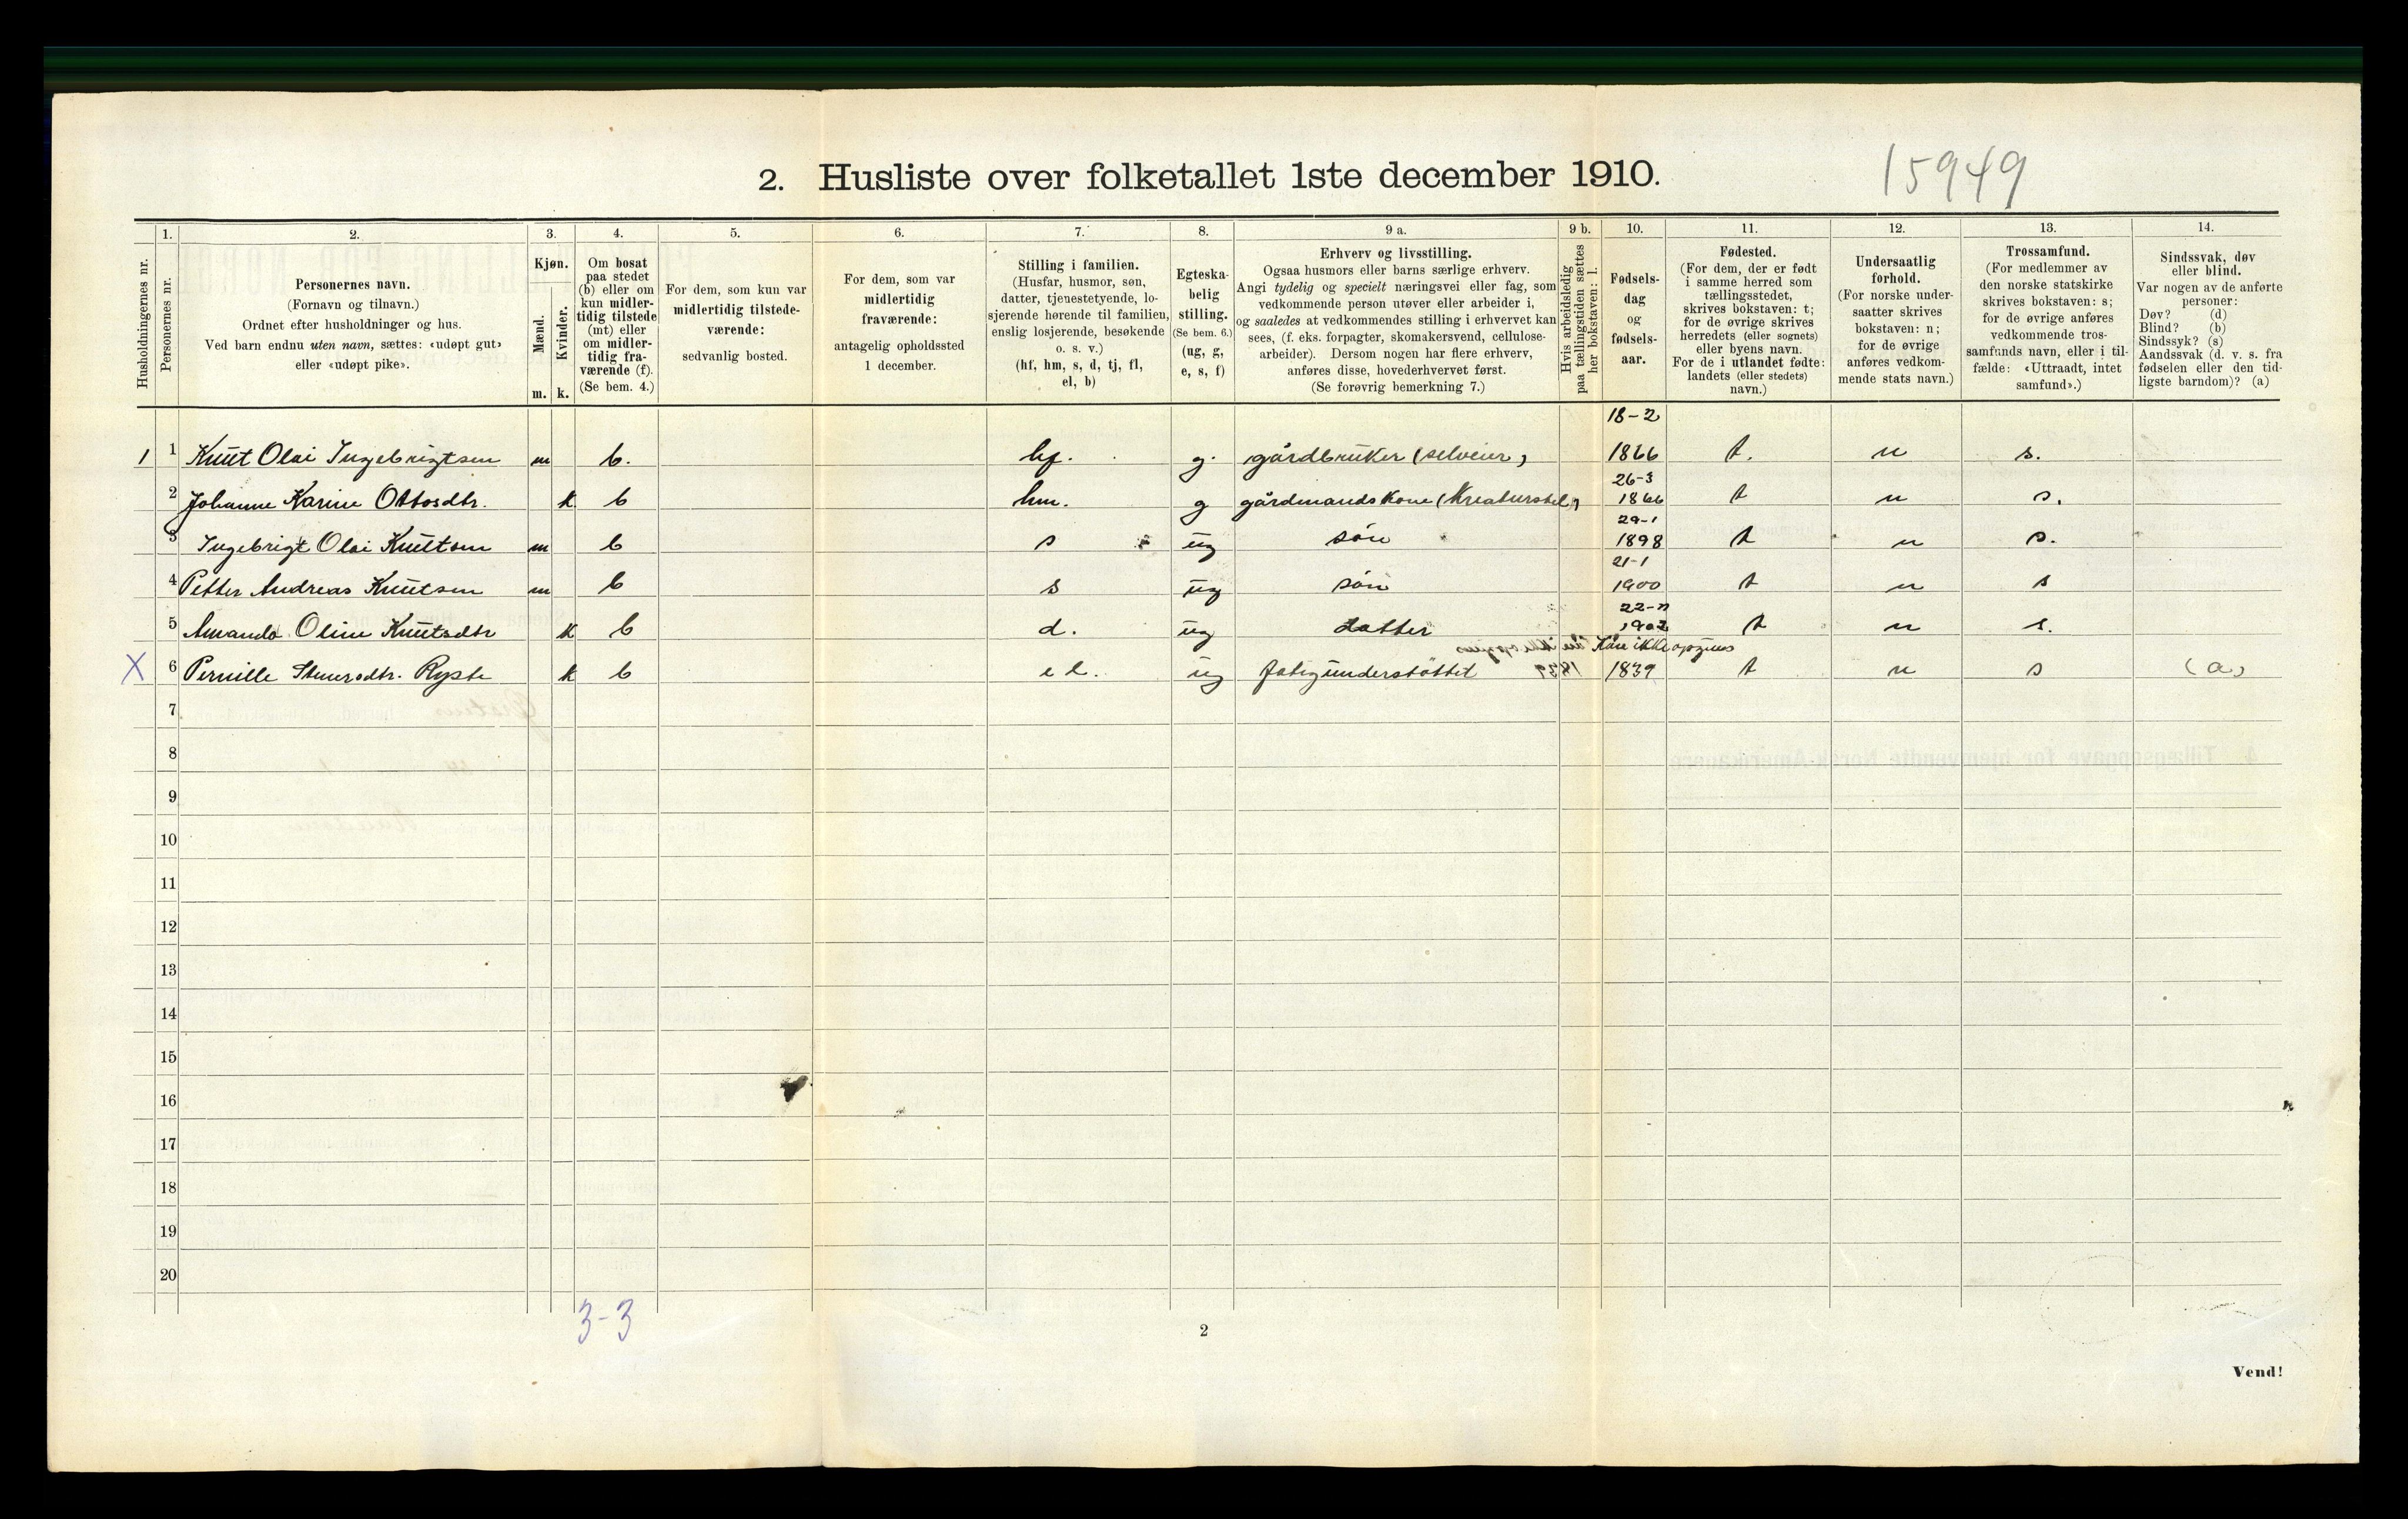 15949
2. Husliste over folketallet 1ste december 1910.
Husholdningernes nr.
1.
Personernes nr.
2.
Personernes navn.
(Fornavn og tilnavn.)
Ordnet efter husholdninger og hus.
Ved barn endnu uten navn, sættes: «udøpt gut»
eller «udøpt pike».
3.
Kjøn.
Mænd.
Kvinder.
m. k.
4.
Om bosat
paa stedet
(b) eller om
kun midler-
tidig tilstede
(mt) eller
om midler-
tidig fra-
værende (f).
(Se bem. 4.)
5.
For dem, som kun var
midlertidig tilstede-
værende:
sedvanlig bosted.
6.
For dem, som var
midlertidig
fraværende:
antagelig opholdssted
1 december.
7.
Stilling i familien.
(Husfar, husmor, søn,
datter, tjenestetyende, lo-
sjerende hørende til familien,
enslig losjerende, besøkende
o. s. v.)
(hf, hm, s, d, tj, fl,
el, b)
8.
Egteska-
belig
stilling.
(Se bem. 6.)
(ug, g,
e, s, f)
9 a.
Erhverv og livsstilling.
Ogsaa husmors eller barns særlige erhverv.
Angi tydelig og specielt næringsvei eller fag, som
vedkommende person utøver eller arbeider i,
og saaledes at vedkommendes stilling i erhvervet kan
sees, (f. eks. forpagter, skomakersvend, cellulose-
arbeider). Dersom nogen har flere erhverv,
anføres disse, hovederhvervet først.
(Se forøvrig bemerkning 7.)
9 b.
Hvis arbeidsledig
paa tællingstiden sættes
her bokstaven: l.
10.
Fødsels-
dag
og
fødsels-
aar.
11.
Fødested.
(For dem, der er født
i samme herred som
tællingsstedet,
skrives bokstaven: t;
for de øvrige skrives
herredets (eller sognets)
eller byens navn.
For de i utlandet fødte:
landets (eller stedets)
navn.)
12.
Undersaatlig
forhold.
(For norske under-
saatter skrives
bokstaven: n;
for de øvrige
anføres vedkom-
mende stats navn.)
13.
Trossamfund.
(For medlemmer av
den norske statskirke
skrives bokstaven: s;
for de øvrige anføres
vedkommende tros-
samfunds navn, eller i til-
fælde: «Uttraadt, intet
samfund».)
14.
Sindssvak, døv
eller blind.
Var nogen av de anførte
personer:
Døv? (d)
Blind? (b)
Sindssyk? (s)
Aandssvak (d. v. s. fra
fødselen eller den tid-
ligste barndom)? (a)
18-2
1 1 Knut Olai Ingebrigtsen m b. hf. g. gårdbruker (selveier) 1866 t. n s.
26-3
2 Johanne Karine Ottosdtr. k b hm. g gårdmandskone (Kreaturstel) 1866 t n s.
29-1
3 Ingebrigt Olai Knutson m b s ug søn 1898 t n s.
21-1
4 Petter Andreas Knutsen m b s ug søn 1900 t n s
5 Amanda Oline Knutsdtr k b d. ug datter 1902 t n s.
Kan ikke opgives
X 6 Pernille Steinersdtr. Rypte k b el. ug fatigunderstøttet 1839 t n s (a)
7
8
9
10
11
12
13
14
15
16
17
18
19
20
3-3
2
Vend!